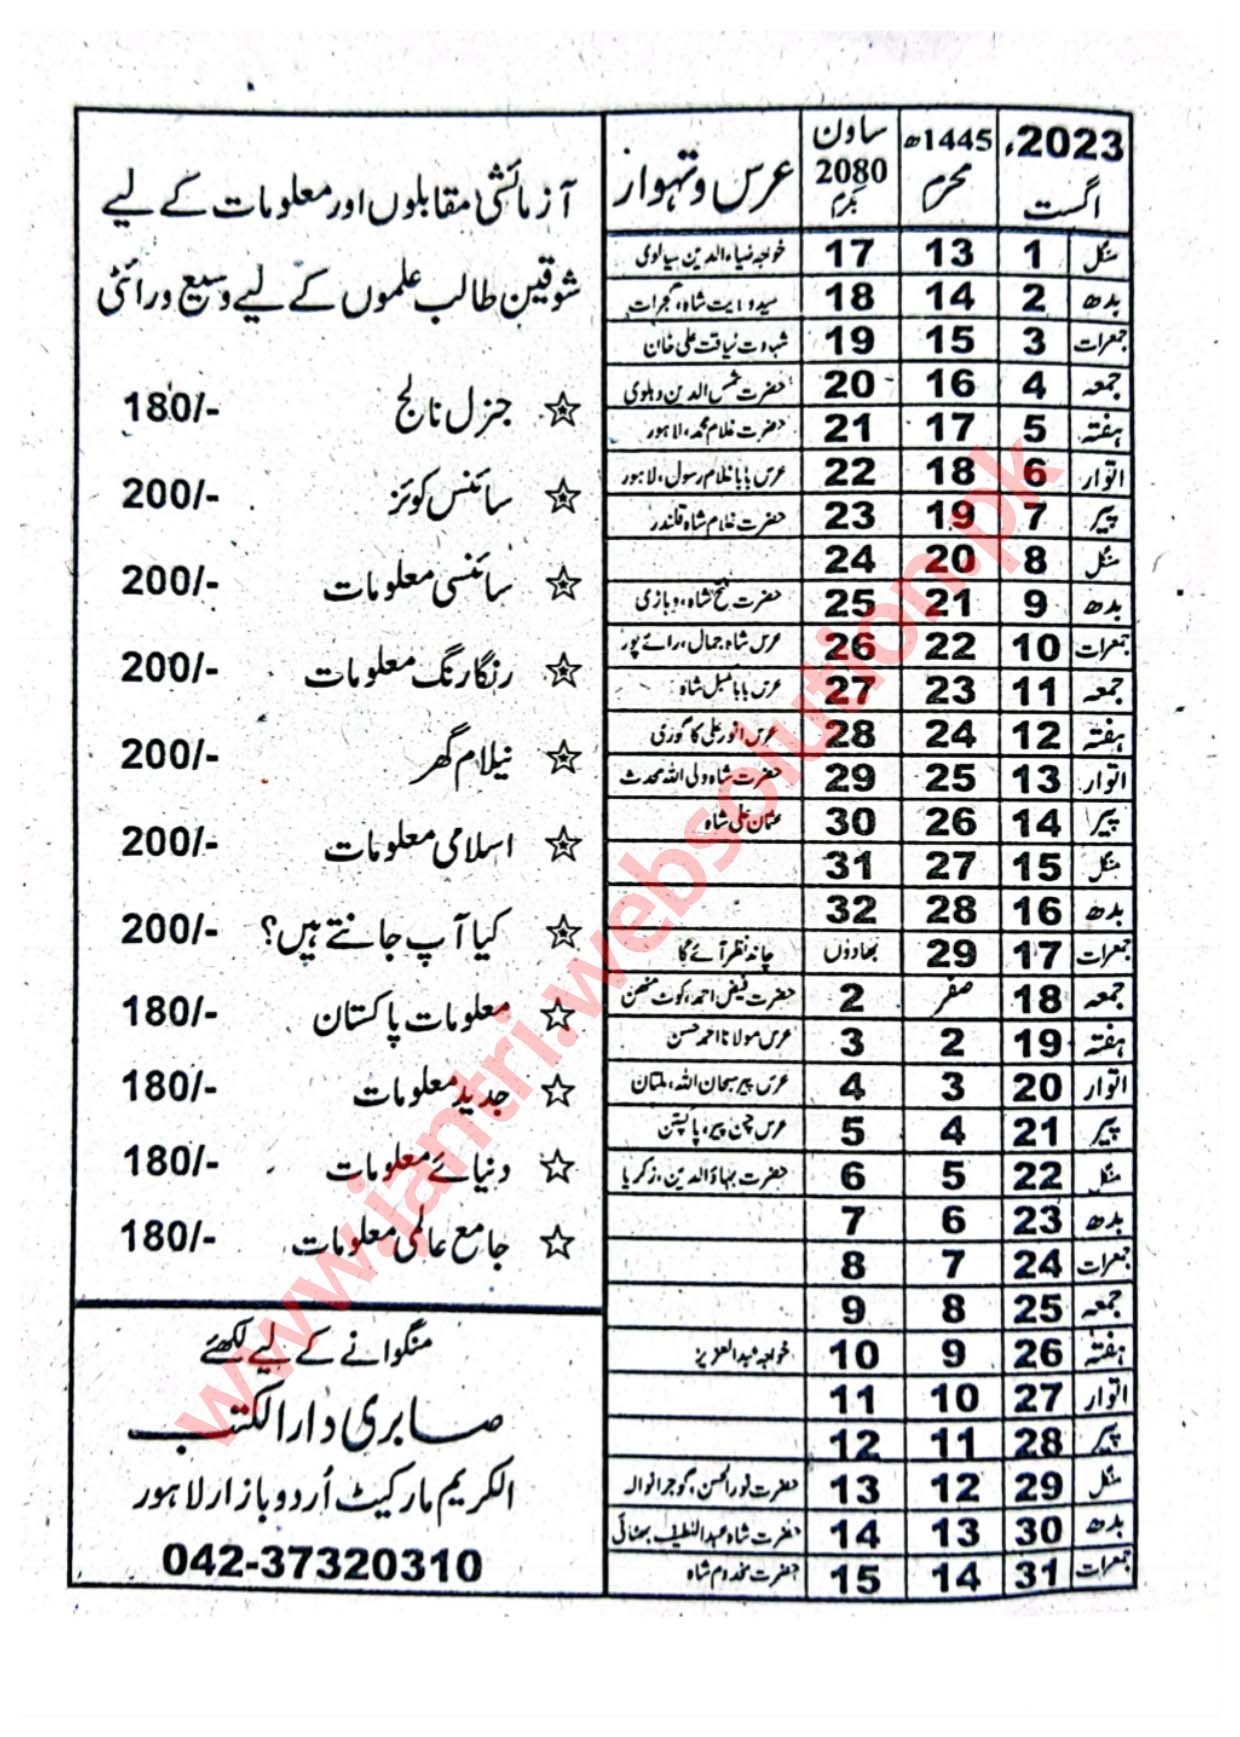 2023ء اگست 1445ھ محرم ساون 2080 بکرم عرس و تہوار
منگل 1 13 17 خواجہ ضیاء الدین سیالوی
بدھ 2 14 18 سید ولایت شاہ، گجرات
جمعرات 3 15 19 شہادت لیاقت علی خان
جمعہ 4 16 20 حضرت شمس الدین دہلوی
ہفتہ 5 17 21 حضرت غلام محمد، لاہور
اتوار 6 18 22 عرس بابا غلام رسول، لاہور
پیر 7 19 23 حضرت غلام شاہ قلندر
منگل 8 20 24
بدھ 9 21 25 حضرت فتح شاہ، وہاڑی
جمعرات 10 22 26 عرس شاہ جمال، رائے پور
جمعہ 11 23 27 عرس بابا شاہ
ہفتہ 12 24 28 عرس انور علی
اتوار 13 25 29 حضرت شاہ ولی اللہ محدث
پیر 14 26 30 عثمان علی شاہ
منگل 15 27 31
بدھ 16 28 32
جمعرات 17 29 بھادوں چاند نظر آئے گا
جمعہ 18 صفر 2 حضرت فیض احمد، کوٹ مٹھن
ہفتہ 19 2 3 عرس مولانا احمد حسن
اتوار 20 3 4 عرس پیر سبحان اللہ، ملتان
پیر 21 4 5 عرس چن پیر، پاکپتن
منگل 22 5 6 حضرت بہاؤالدین، زکریا
بدھ 23 6 7
جمعرات 24 7 8
جمعہ 25 8 9
ہفتہ 26 9 10 خواجہ عبدالعزیز
اتوار 27 10 11
پیر 28 11 12
منگل 29 12 13 حضرت نورالحسن، گوجرانوالہ
بدھ 30 13 14 حضرت شاہ عبداللطیف بھٹائی
جمعرات 31 14 15 حضرت مخدوم شاہ
آزمائشی مقابلوں اور معلومات کے لیے
شوقین طالب علموں کے لیے وسیع ورائٹی
جنرل نالج 180/-
سائنس کوئز 200/-
سائنسی معلومات 200/-
رنگا رنگ معلومات 200/-
نیلام گھر 200/-
اسلامی معلومات 200/-
کیا آپ جانتے ہیں؟ 200/-
معلومات پاکستان 180/-
جدید معلومات 180/-
دنیائے معلومات 180/-
جامع عالمی معلومات 180/-
منگوانے کے لیے لکھئے
صابری دارالکتب
الکریم مارکیٹ اُردو بازار لاہور
042-37320310
www.jantri.websolution.pk